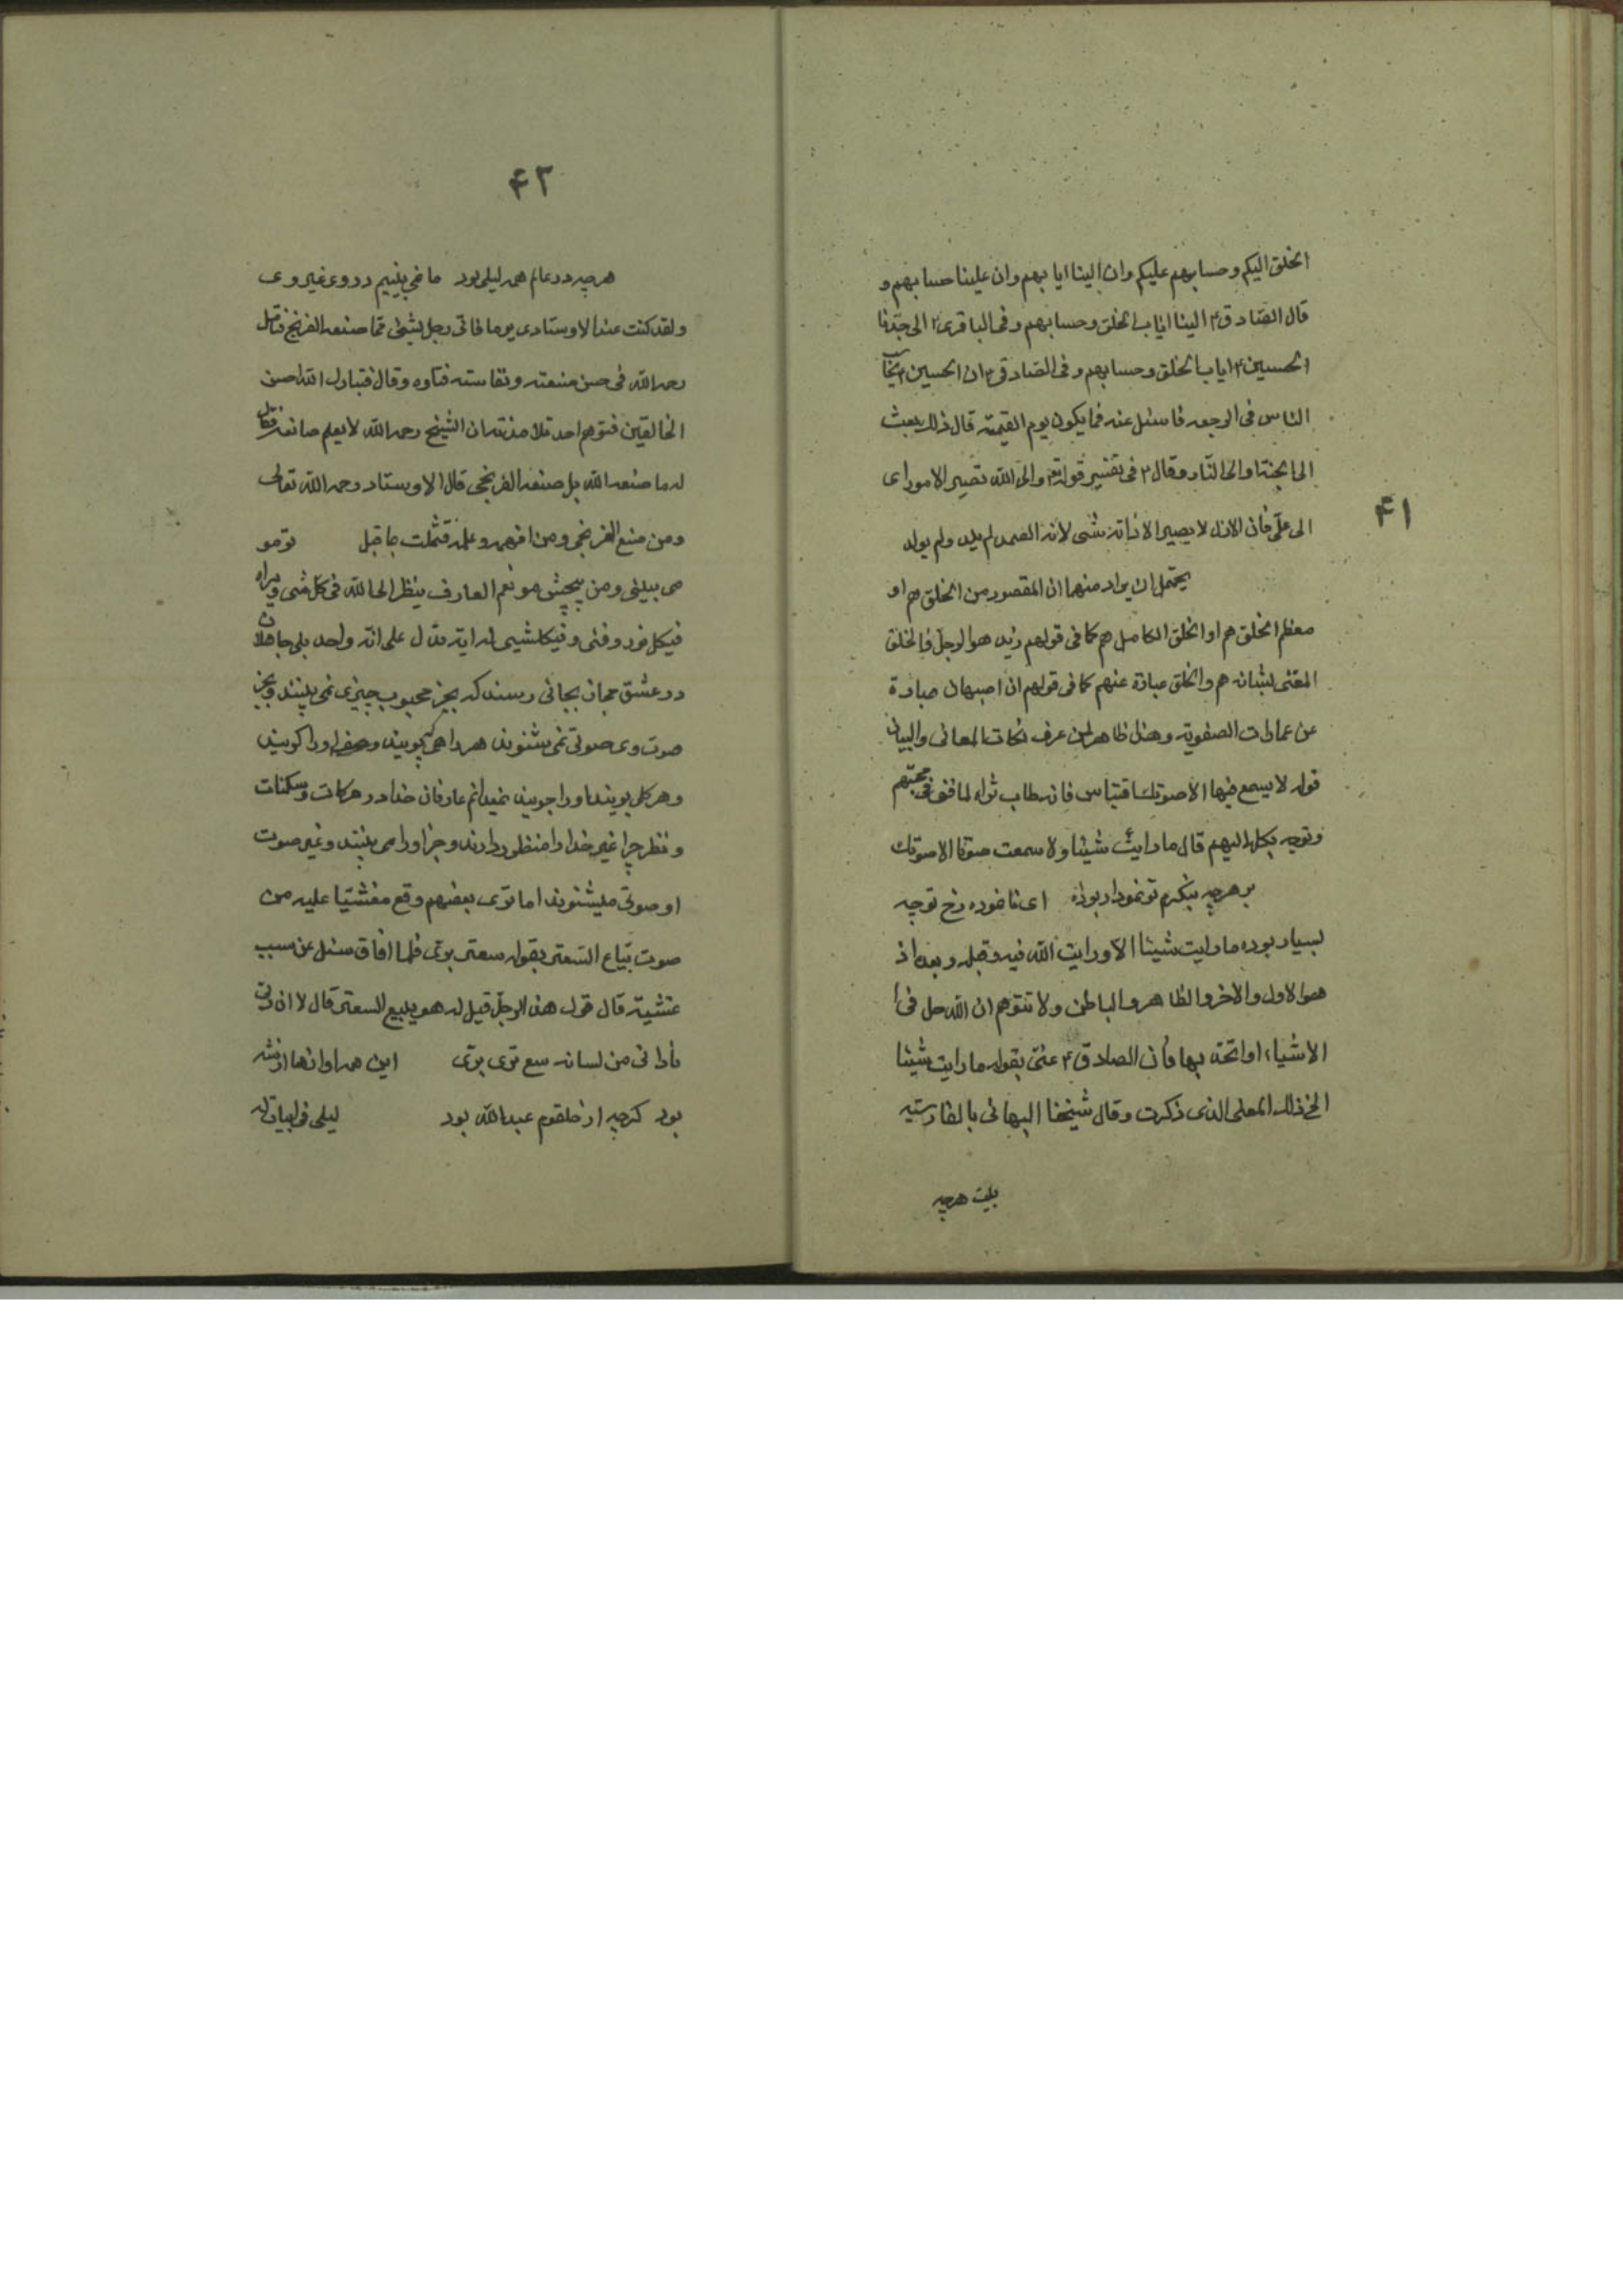 ۴۱
الخلق الیکم و حسابهم علیکم وان الینا ایابهم وان علینا حسابهم و
قال الصادق ۴ الینا ایاب الخلق و حسابهم و فی الباقری ۴ الی جدنا
الحسین ۴ ایاب الخلق و حسابهم و فی الصادقی ۴ ان الحسین ۴ یحاسب
الناس فی الرجعه فاسئل عنه فما یکون یوم القیمة قال ذلک یبعث
الی الجنة والی النار و قال ۴ فی تفسیر قوله تع والی الله تصیر الامور ای
الی علی فان الازل لا یصیر الا ذاته شی لانه الصمد لم یلد ولم یولد
یحتمل ان یراد منهما ان المقصور من الخلق هم او
معظم الخلق هم او الخلق الکامل هم کما فی قولهم زید هو الرجل فالخلق
المعتنی بشانه هم والخلق عبارة عنهم کما فی قولهم ان اصبهان عبارة
عن عمارات الصفویة و هذا ظاهر لمن عرف نکات المعانی والبیان
قوله لا یسمع فیها الا صوتک اقتباس فانه طاب ثراه لما فنی فی محبتهم
وتوجه بکله الیهم قال ما رایت شیئا ولا سمعت صوتا الا صوتک
بر هرچه بنگرم تو نمودار بوده ای نا نموده رخ تو چه
بسیار بوده ما رایت شیئا الا و رایت الله فیه و قبله و بعده اذ
هو الاول والاخر والظاهر والباطن ولا تتوهم ان الله حل فی ا
الاشیاء او اتحد بها فان الصادق ۴ عنی بقوله ما رایت شیئا
الخ ذلک المعنی الذی ذکرت و قال شیخنا البهائی بالفارسیه
بیت هرچه
۴۲
هرچه در عالم همه لیلی بود ما نمی بینیم در وی غیر وی
ولقد کنت عند الاوستادی یوما فاتی رجل بشئ مما صنعه الفرنج فتامل
رحمه الله فی حسن صنعته و نفاسته فتاوه و قال فتبارک الله احسن
الخالقین فتوهم احد تلامذته ان الشیخ رحمه الله لا یعلم صانعه فقال
له ما صنعه الله بل صنعه الفرنجی قال الاوستاد رحمه الله تعالی
ومن صنع الفرنجی ومن افهمه و علمه فتمثلت بما قبل تو مو
می بینی و من پیچش مو نعم العارف ینظر الی الله فی کل شی و یراه
فیکل نور و فئی و فیکلشیی له ایة تدل علی انه واحد بلی جاهلان
در عشق مجان بجائی رسند که بجز محبوب چیزی نمی بینند و بجز
صوت وی صوتی نمی شنوند هر راهی که پویند وصف او را گویند
و هر گلی بویند او را جویند نمیدانم عارفان خدا در حرکات و سکنات
و نظر چرا غیر خدا را منظور دارند و جز او را می بینند و غیر صوت
او صوتی میشنوند اما تری بعضهم وقع مغشیا علیه من
صوت بیاع السعتر بقوله سعتر بری فلما افاق سئل عن سبب
غشیته قال قول هذا الرجل قیل له هو یبیع السعتر قال لا ان ربی
نادانی من لسانه سع تری بری این همه اوازها از شه
بود گرچه از حلقوم عبدالله بود